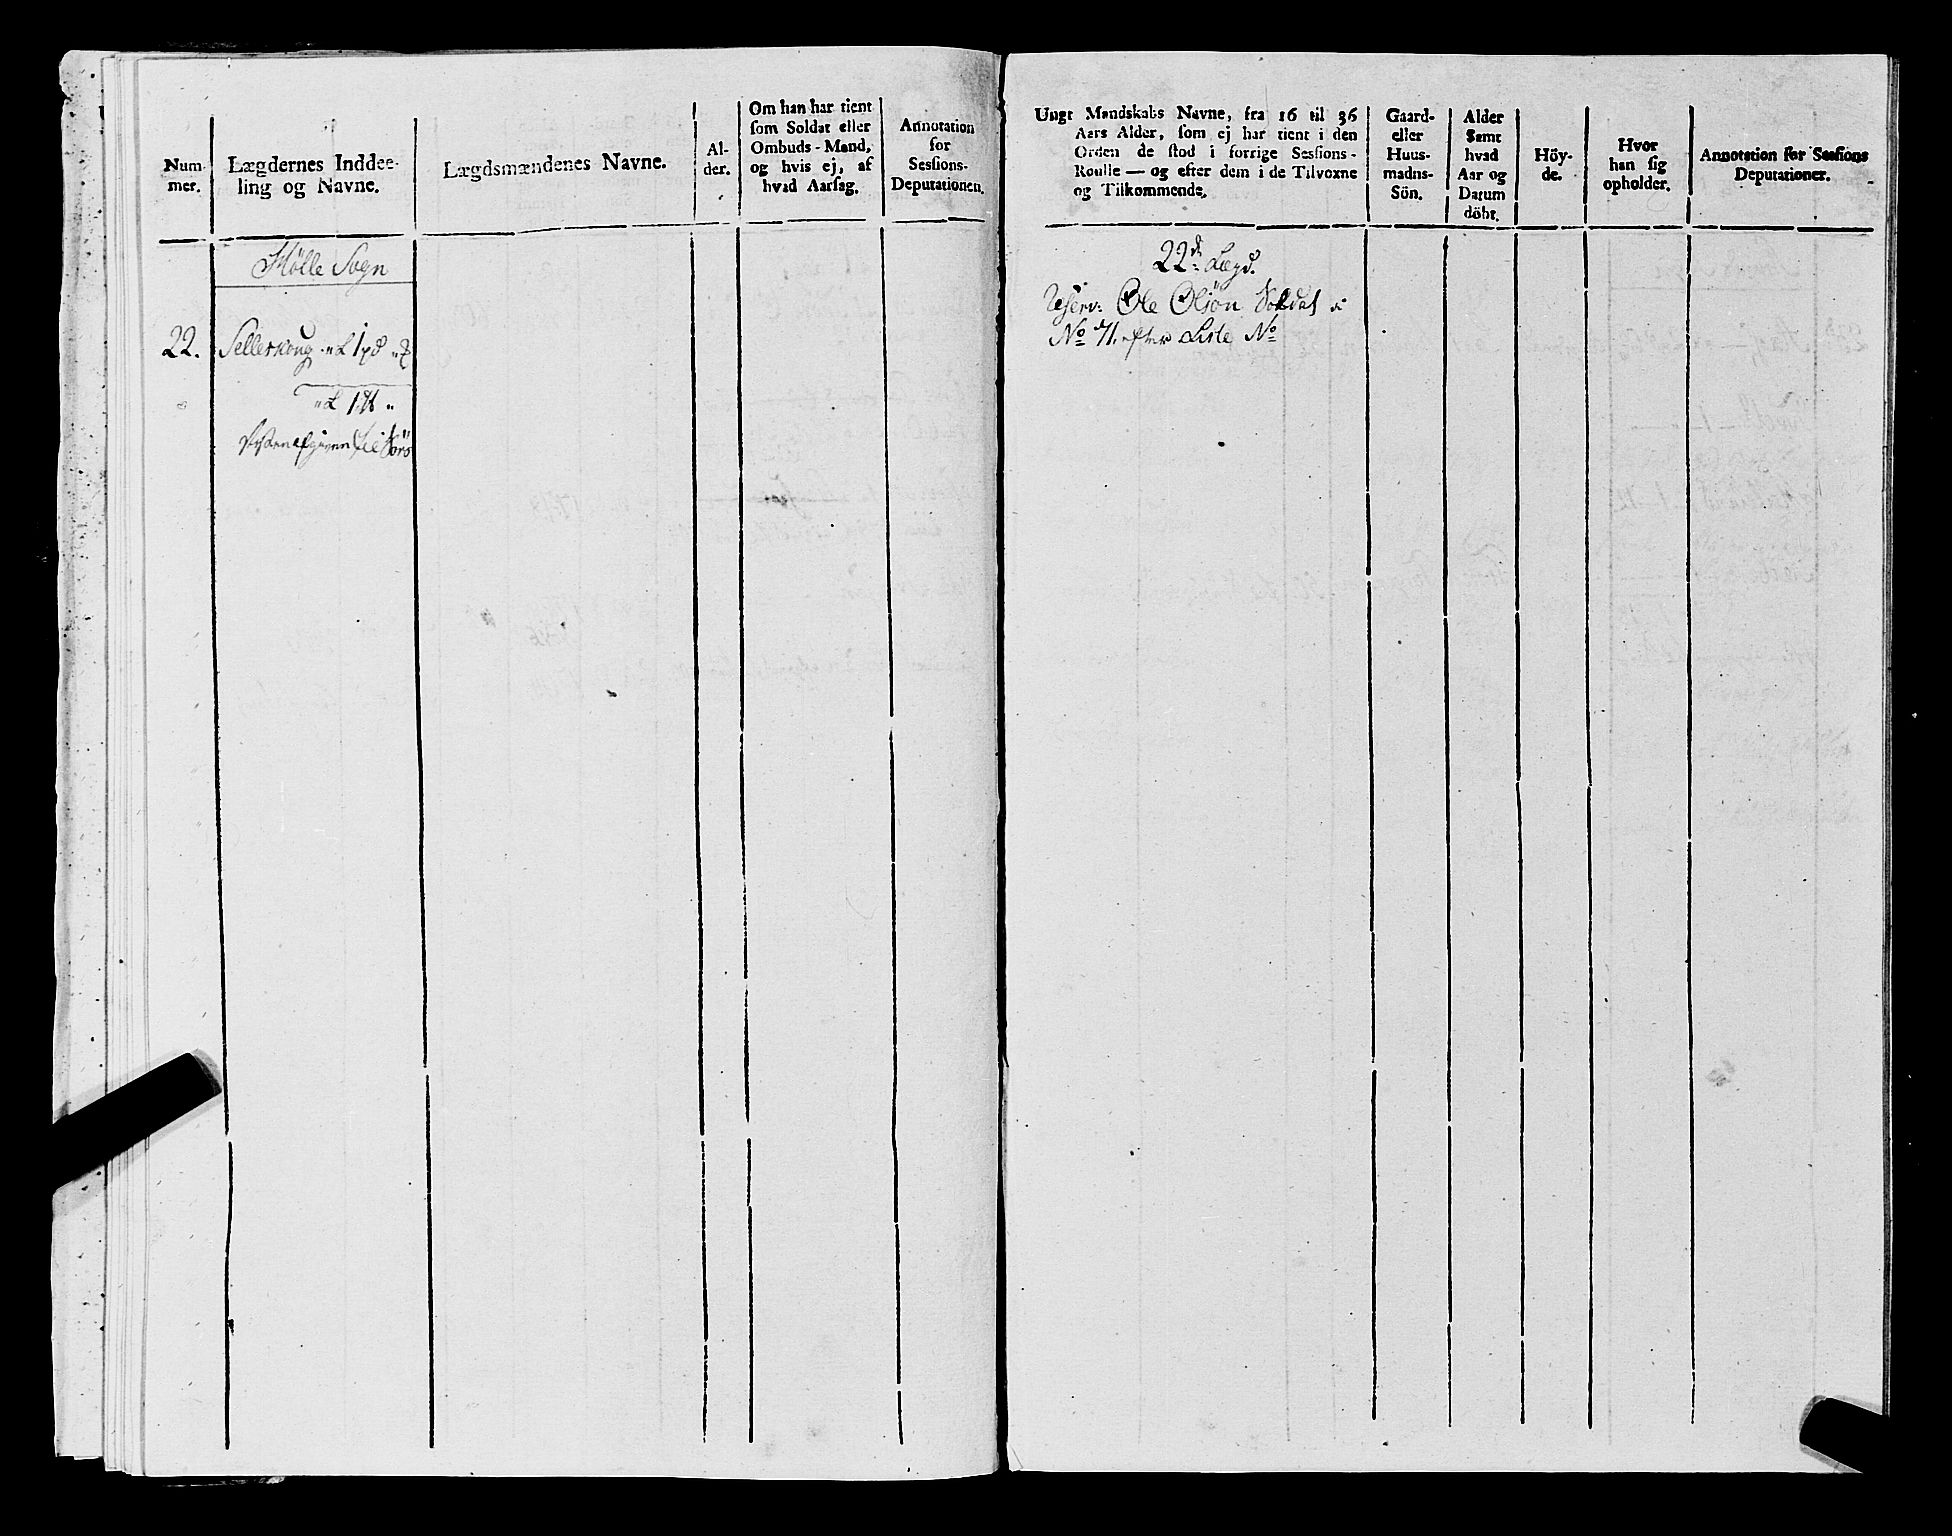 Num-
mer.
Lægdernes Inddee-
ling og Navne.
Lægdsmændenes Navne.
Al-
der.
Om han har tient
som Soldat eller
Ombuds-Mand,
og hvis ej, af
hvad Aarsag.
Annotation
for
Sessions-
Deputationen.
Hølle Sogn
22.
Sellerskoug
Ungt Mandskabs Navne, fra 16 til 36
Aars Alder, som ej har tient i den
Orden de stod i forrige Sessions-
Roulle — og efter dem i de Tilvoxne
og Tilkommende.
Gaard-
eller
Huus-
madns-
Sön.
Alder
Samt
hvad
Aar og
Datum
döbt.
Höy-
de.
Hvor
han sig
opholder.
Annotation for Sessions
Deputationer.
22d Lægd.
Reserv: Ole Olsön Soldat
No 71. efter Liste No